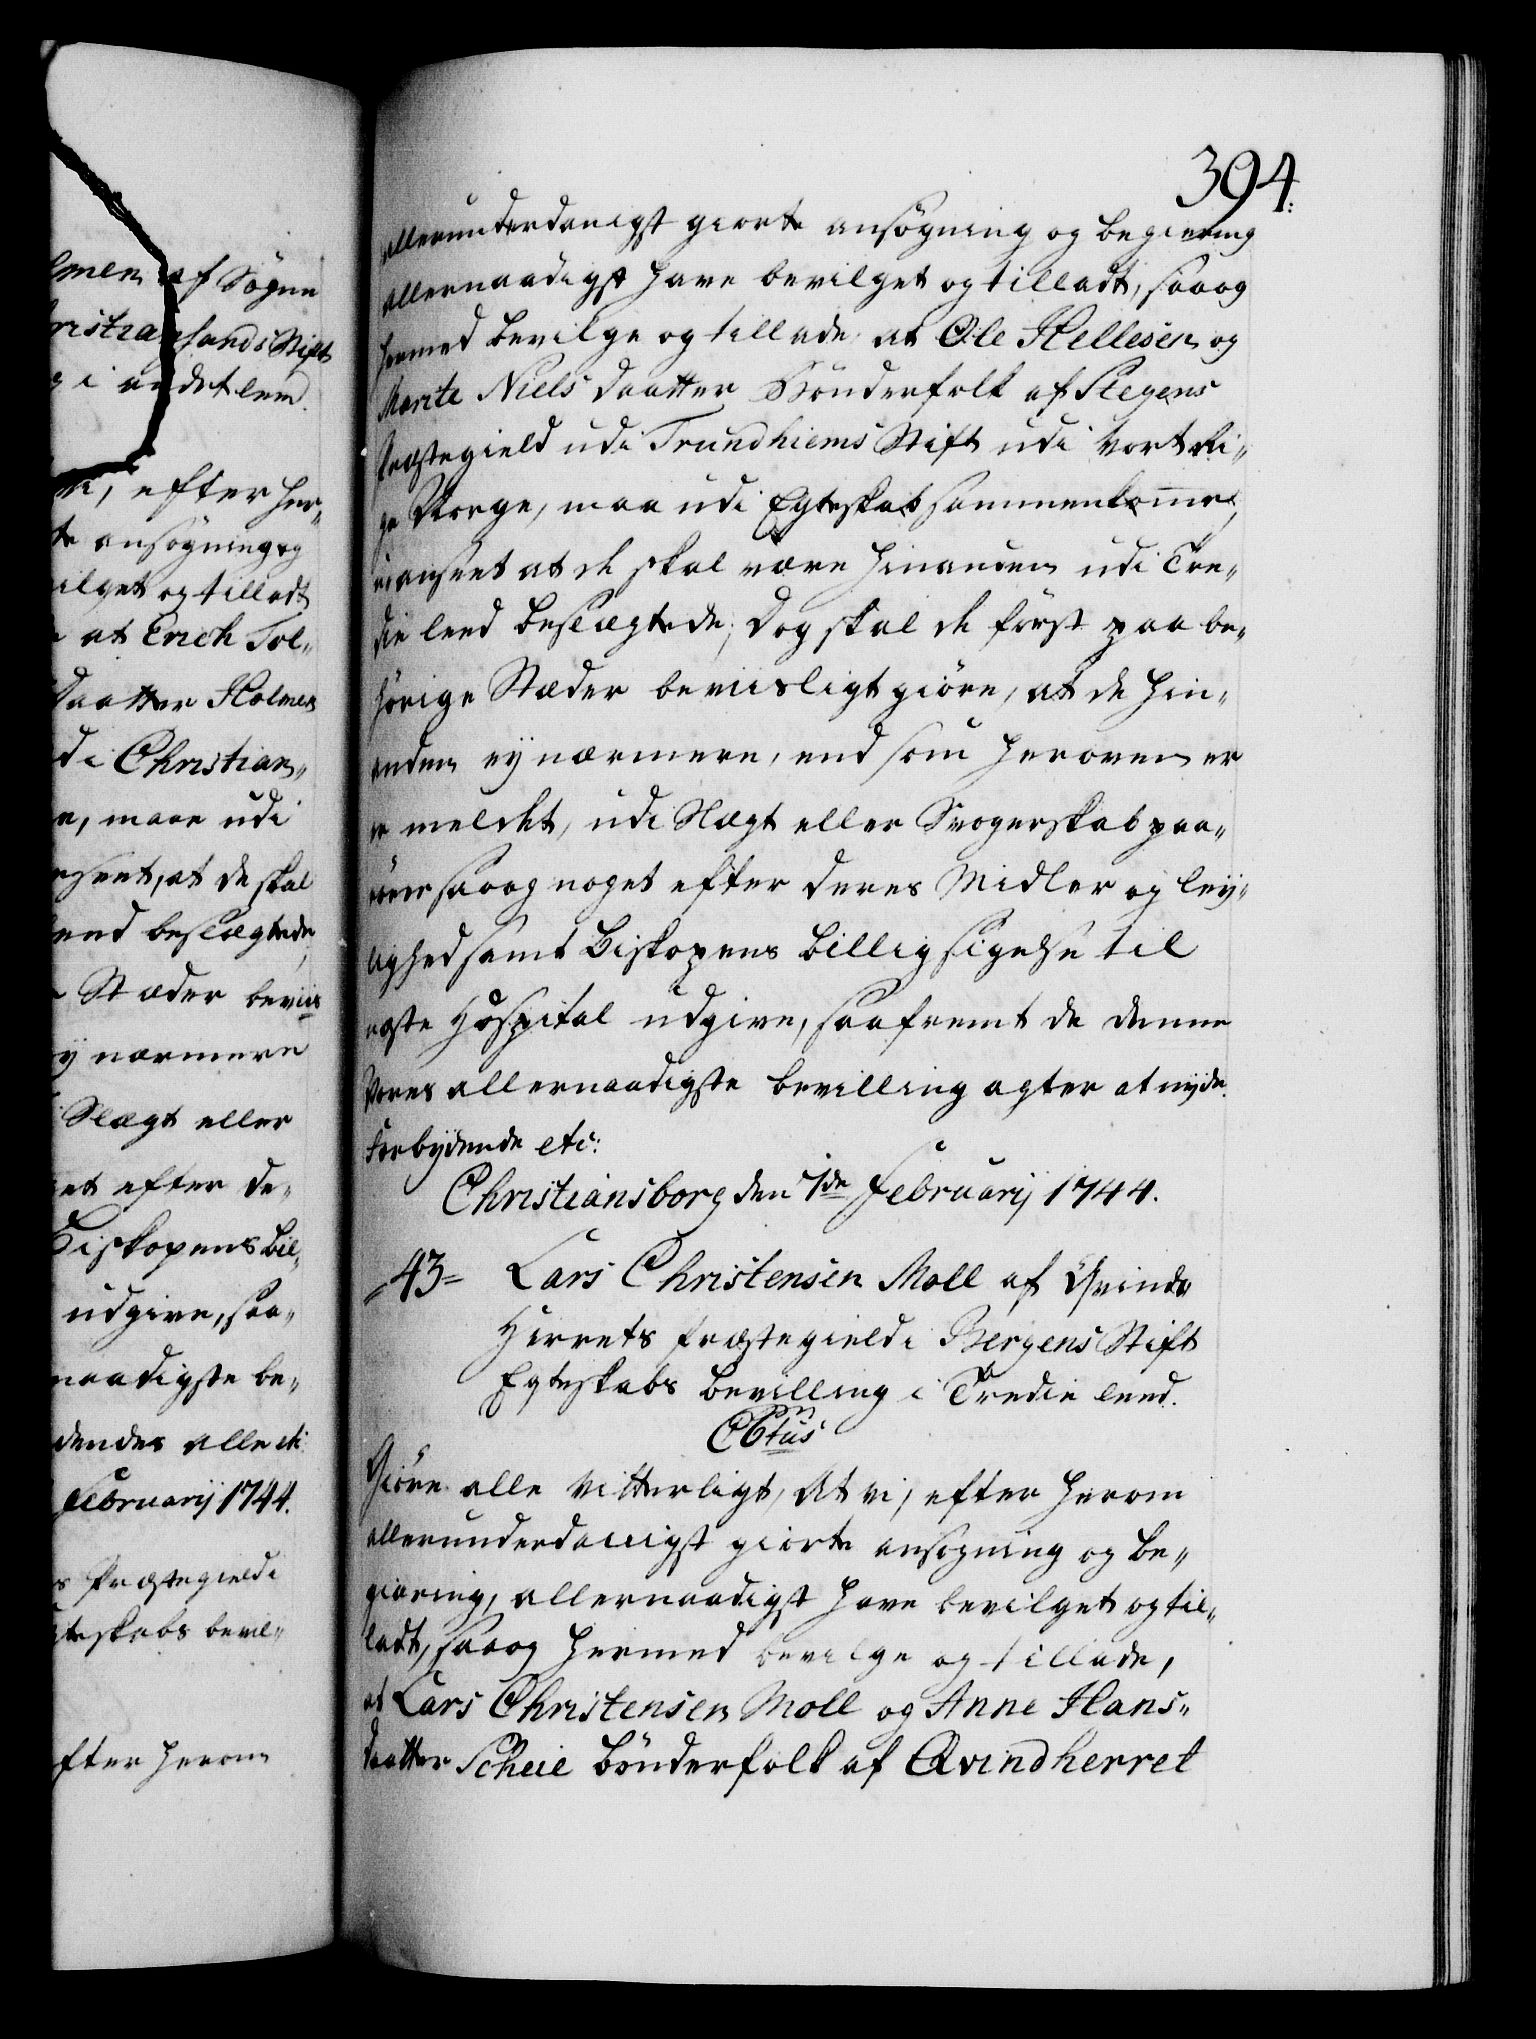 394.
allerunderdanigst giorte ansøgning og begiering
allernaadigst have bevilget og tilladt, saa og
hermed bevilge og tillade, at Ole Hellesen og
Marite Niels daatter Bønderfolk af Stegens
Præstegield udi Trundhiems Stift udi vort Ri„
ge Norge, maa udi Egteskab sammenkom̅e,
uanseet at de skal være hinanden udi Tre„
die leed beslægtede; dog skal de først paa be„
hørige Stæder beviisligt giøre, at de hin„
anden ey nærmere, end som heroven er
er meldet, udi Slægt eller Svogerskab paa„
rører saa og noget efter deres Midler og ley„
lighed samt Biskopens billigsigelse til
næste Hospital udgive, saafremt de denne
Vores allernaadigste bevilling agter at nyde.
Forbydende etc:
Christiansborg den 7de Februarij 1744.
43= Lars Christensen Moll af Qvinde
Herrets Præstegield i Bergens Stift
Egteskabs bevilling i Tredie leed.
C6tus
Giøre alle vitterligt, At vi, efter herom
allerunderdanigst giorte ansøgning og be„
giæring, allernaadigst have bevilget og til„
ladt, saa og hermed bevilge og tillade,
at Lars Christensen Moll og Anne Hans„
daatter Scheie bønderfolk af Qvindherret
lmen af Sogne
hristiansands Stift
g i andet leed.
vi, efter her„
te ansøgning og
vilget og tilladt
at Erich Tol„
daatter Holmen
di Christian„
e, maae udi
anseet, at de skal
leed beslægtede,
Stæder beviis
ey nærmere
Slægt eller
get efter de„
Biskopens bil„
udgive, saa„
naadigste be„
dendes alle etc
Februarij 1744.
s Præstegield i
gteskabs bevil„
efter herom